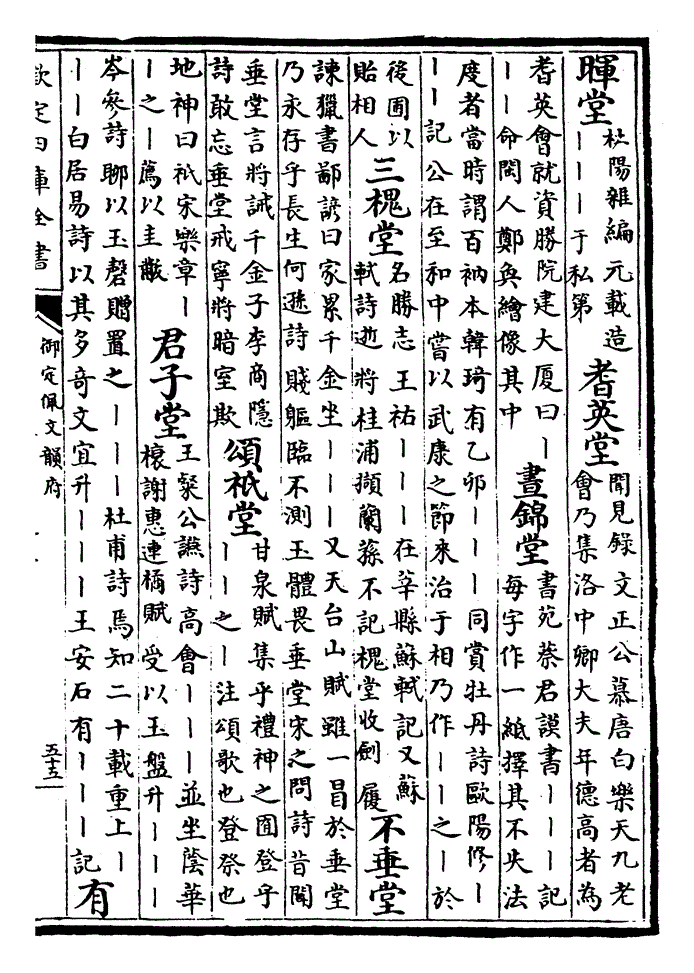 暉堂
杜陽雜編元載造
丨丨丨于私第
耆英堂
聞見錄文正公慕唐白樂天九老
會乃集洛中卿大夫年德高者為
耆英會就資勝院建大厦曰丨
丨丨命閩人鄭奐繪像其中
晝錦堂
書苑蔡君謨書丨丨丨記
每字作一紙擇其不失法
度者當時謂百衲本韓琦有乙卯丨丨丨同賞牡丹詩歐陽修丨
丨丨記公在至和中嘗以武康之節來治于相乃作丨丨之丨於
後圃以
貽相人
三槐堂
名勝志王祐丨丨丨在莘縣蘇軾記又蘇
軾詩逝將桂浦擷蘭蓀不記槐堂收劍履
不垂堂
諫獵書鄙諺曰家累千金坐丨丨丨又天台山賦雖一冒於垂堂
乃永存乎長生何遜詩賤軀臨不測玉體畏垂堂宋之問詩昔聞
垂堂言將誡千金子李商隱
詩敢忘垂堂戒寧將暗室欺
頌祇堂
甘泉賦集乎禮神之囿登乎
丨丨之丨注頌歌也登祭也
地神曰祇宋樂章丨
丨之丨薦以圭黻
君子堂
王粲公讌詩高會丨丨丨並坐蔭華
榱謝惠連橘賦受以玉盤升丨丨丨
岑參詩聊以玉磬贈置之丨丨丨杜甫詩焉知二十載重上丨
丨丨白居易詩以其多奇文宜升丨丨丨王安石有丨丨丨記
有
欽定四庫全書
御定佩文韻府
五十五